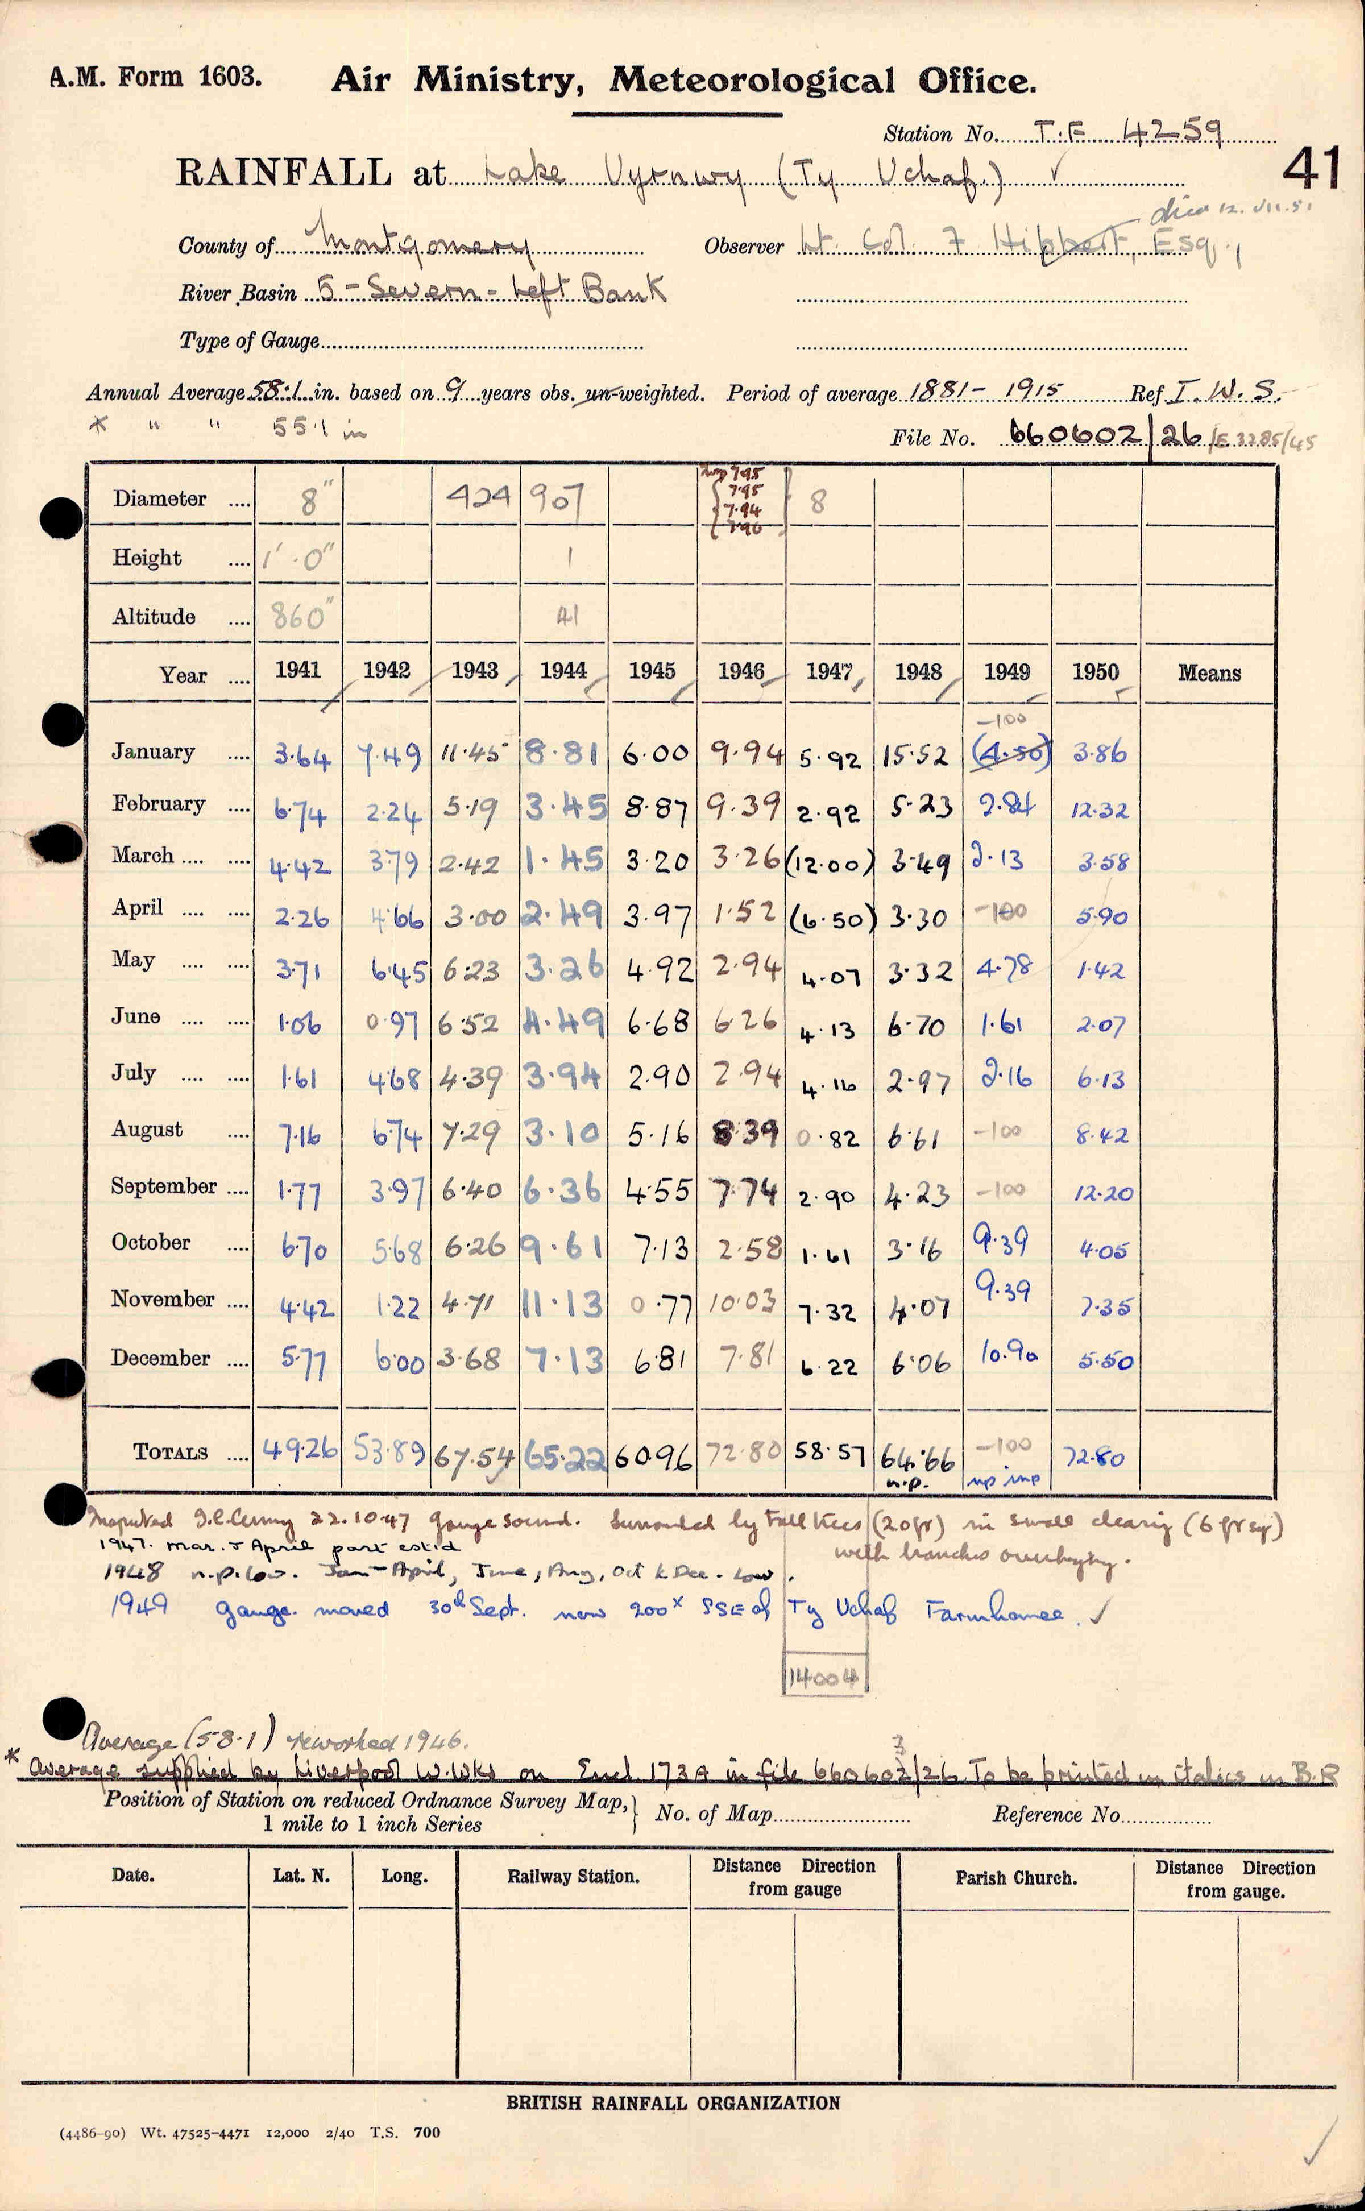 A.M. Form 1603. Air Ministry, Meteorological Office.
Station No. T.F. 4259
41
RAINFALL at Lake Vyrnwy (Ty Uchaf.) ✓
died 12.VII.51
County of Montgomery Observer Lt. Col. F. Hibbert, Esq.,
River Basin 5 - Severn - Left Bank
Type of Gauge
Annual Average 58.1 in. based on 9 years obs. un-weighted. Period of average 1881 - 1915 Ref I. W. S.
* " " 55.1 in
File No. 660602/26 /E3285/45
Diameter .... 8" 424 907 7.95 7.95 7.94 7.96 8
Height .... 1'.0" 1
Altitude .... 860" 41
Year .... 1941 1942 1943 1944 1945 1946 1947 1948 1949 1950 Means
-100
January .... 3.64 7.49 11.45 8.81 6.00 9.94 5.92 15.52 (4.50) 3.86
February .... 6.74 2.24 5.19 3.45 8.87 9.39 2.92 5.23 2.84 12.32
March .... .... 4.42 3.79 2.42 1.45 3.20 3.26 (12.00) 3.49 2.13 3.58
April .... .... 2.26 4.66 3.00 2.49 3.97 1.52 (6.50) 3.30 -100 5.90
May .... .... 3.71 6.45 6.23 3.26 4.92 2.94 4.07 3.32 4.78 1.42
June .... .... 1.06 0.97 6.52 4.49 6.68 6.26 4.13 6.70 1.61 2.07
July .... .... 1.61 4.68 4.39 3.94 2.90 2.94 4.16 2.97 2.16 6.13
August .... 7.16 6.74 7.29 3.10 5.16 8.39 0.82 6.61 -100 8.42
September .... 1.77 3.97 6.40 6.36 4.55 7.74 2.90 4.23 -100 12.20
October .... 6.70 5.68 6.26 9.61 7.13 2.58 1.61 3.16 9.39 4.05
November .... 4.42 1.22 4.71 11.13 0.77 10.03 7.32 4.07 9.39 7.35
December .... 5.77 6.00 3.68 7.13 6.81 7.81 6.22 6.06 10.90 5.50
TOTALS .... 49.26 53.89 67.54 65.22 60.96 72.80 58.57 64.66 -100 72.80
n.p. np inp
Inspected 22.10.47 gauge sound. Surrounded by tall trees (20ft) in small clearing (6ft sq)
with branches overhanging.
1947. Mar. & April part estd
1948 n.p. low. Jan - April, June, Aug, Oct & Dec. low.
1949 gauge moved 30th Sept. now 200x SSE of Ty Uchaf Farmhouse. ✓
14004
Average (58.1) reworked 1946.
3
* Average supplied by Liverpool W.Wks on Encl. 173A in file 660602/26. To be printed in italics in B.R
Position of Station on reduced Ordnance Survey Map, 1 mile to 1 inch Series } No. of Map Reference No.
Date. Lat. N. Long. Railway Station. Distance Direction from gauge Parish Church. Distance Direction from gauge.
BRITISH RAINFALL ORGANIZATION
(4486-90) Wt. 47525-4471 12,000 2/40 T.S. 700